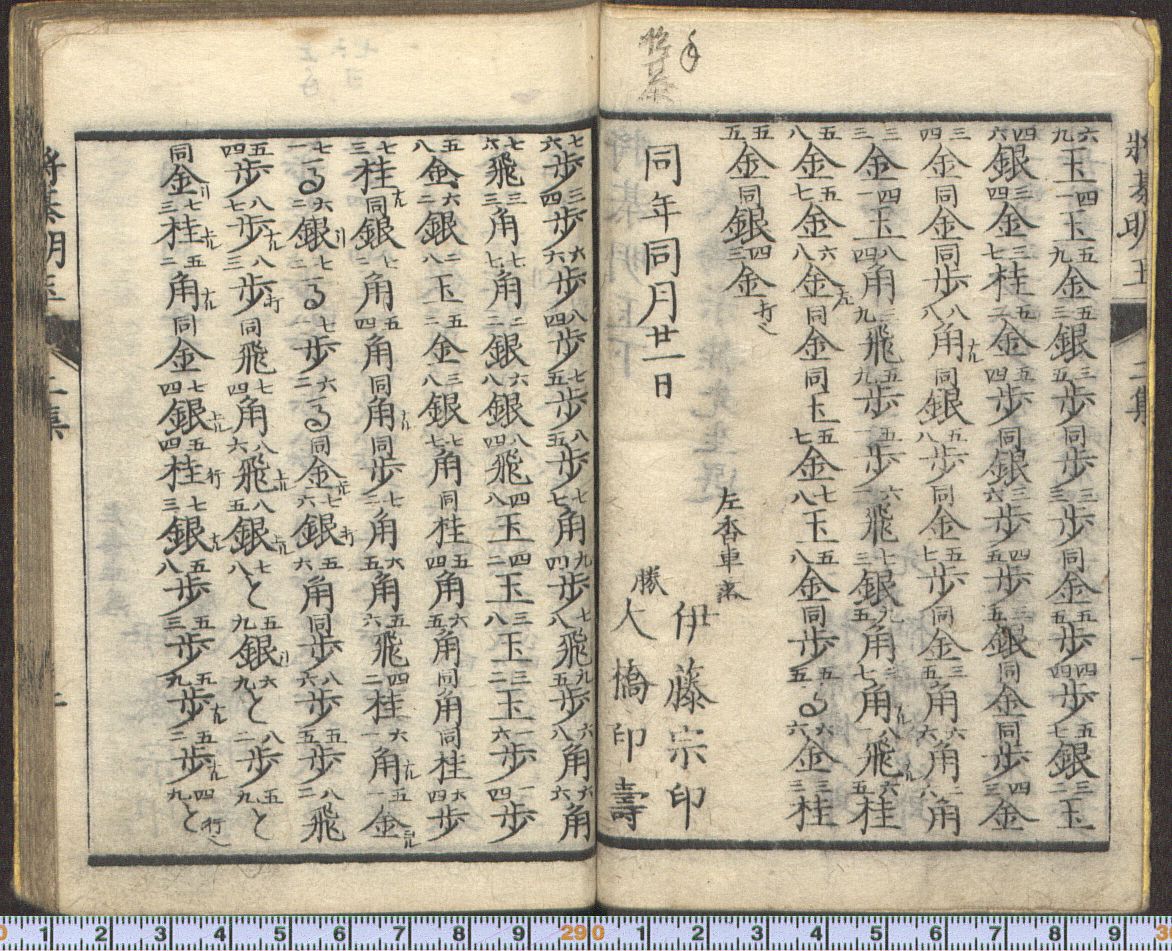 將棊明玉 二集 一
六九玉四一玉五九金五三銀三五歩同歩三三歩同金五五歩四四歩五七銀三二玉
四六銀三四金三七桂五二金五四歩同銀三六歩四五歩三五銀同金同歩四三金
三四金同金同歩八八角成同銀五八歩同金五七歩同金三五角六六角二八角
三三金四一玉八四角三九飛五九歩五一歩六一飛七三銀九五角三七角成一九飛成六五桂
五八金五七金六八金左同金同上五七金七八玉五八金同歩五五馬六六金三三桂
五五金同銀四三金打ヘ
左香車落
同年同月廿一日
伊藤宗印
勝 大橋印壽
七六歩三四歩六六歩八四歩七五歩八五歩七七角九四歩七八飛九五歩六八角六六角
七六飛七三角七七角二二銀六八銀八四飛四八玉四二玉三八玉三二玉一六歩一四歩
五八金六二銀二八玉五二金三八銀七七角同桂五四角六五角同角同桂六四歩
七三桂成同銀七一角五四角同角成同歩七三角六五角五六飛四二桂六一角成五一金引
七一馬六二銀引七二馬七一歩六二馬同金成七六銀打五六角同歩八六歩五五歩八二飛
五四歩八七歩成八三歩打同飛七四角八六飛成八五銀成七八と五九銀引六九と八二歩五九と
同金引七三桂成五二角成同金七四銀成五四桂行七三銀成七八歩五三歩九九歩成五二歩成四九と行ヘ
將棊明玉 二集